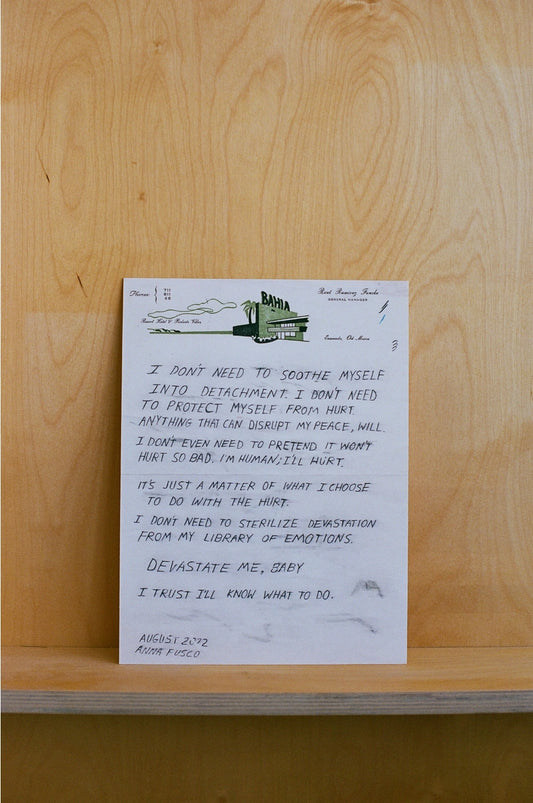 Phones
711
611
46
BAHIA
Raul Ramirez Funcke
GENERAL MANAGER
Resort Hotel & Private Villas
Ensenada, Old Mexico
I DON'T NEED TO SOOTHE MYSELF
INTO DETACHMENT. I DON'T NEED
TO PROTECT MYSELF FROM HURT.
ANYTHING THAT CAN DISRUPT MY PEACE, WILL.
I DON'T EVEN NEED TO PRETEND IT WON'T
HURT SO BAD. I'M HUMAN; I'LL HURT.
IT'S JUST A MATTER OF WHAT I CHOOSE
TO DO WITH THE HURT.
I DON'T NEED TO STERILIZE DEVASTATION
FROM MY LIBRARY OF EMOTIONS.
DEVASTATE ME, BABY
I TRUST I'LL KNOW WHAT TO DO.
AUGUST 2022
ANNA FUSCO